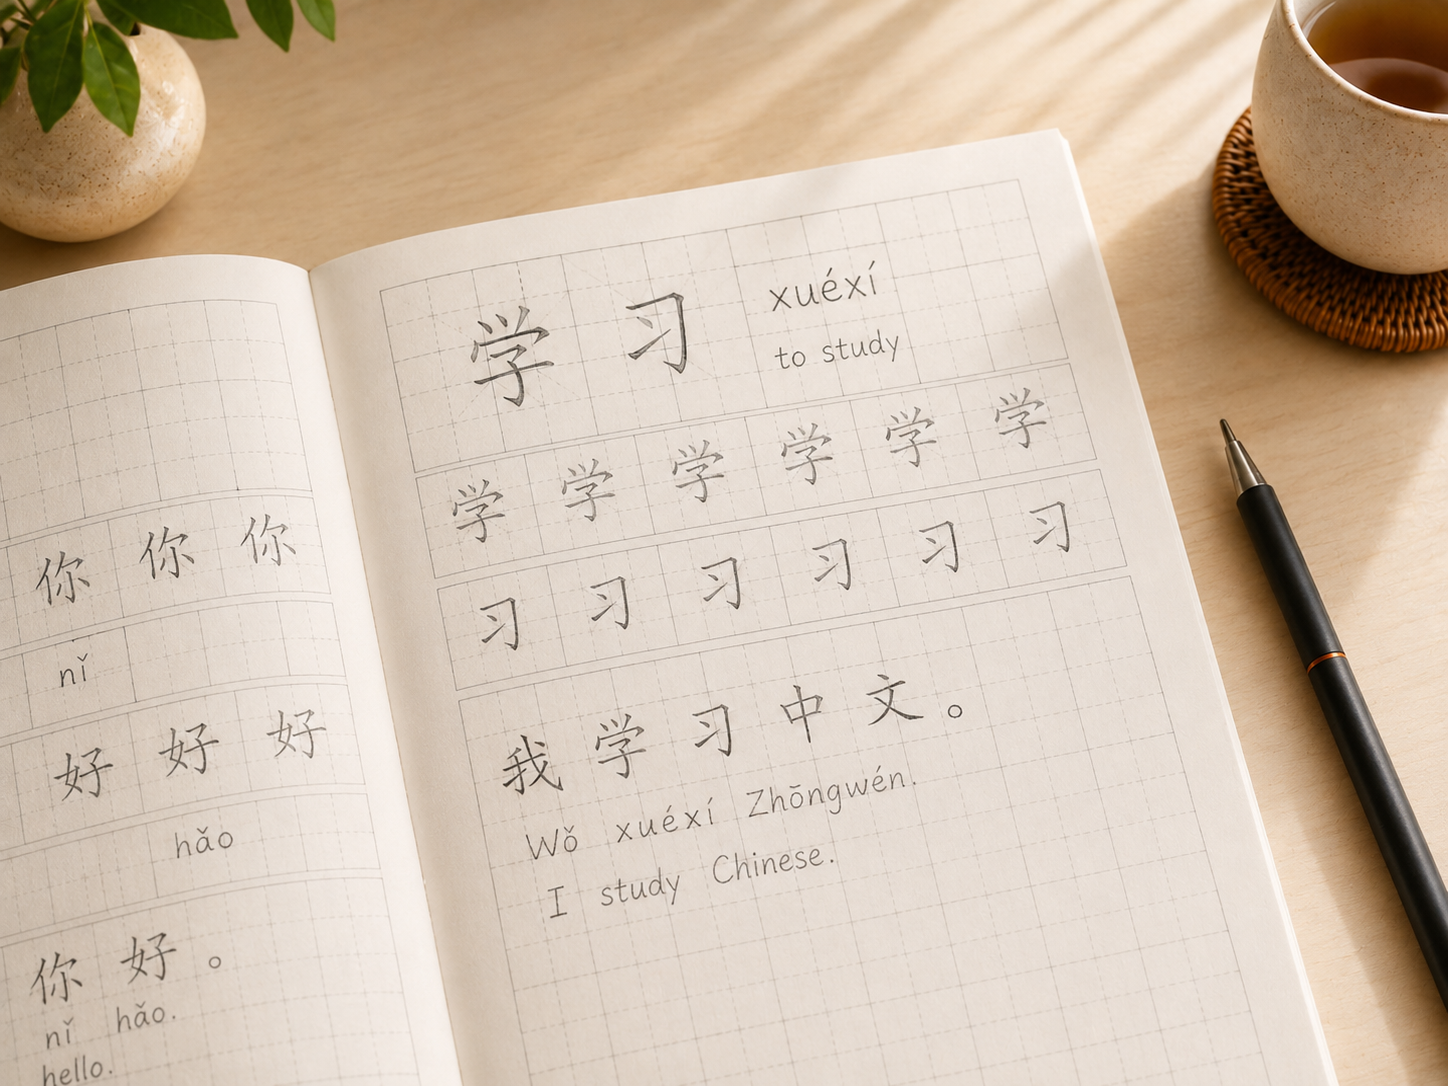 你 你 你
nǐ
好 好 好
hǎo
你 好 。
nǐ hǎo.
hello.
学 习
xuéxí
to study
学 学 学 学 学 学
习 习 习 习 习 习
我 学 习 中 文 。
Wǒ xuéxí Zhōngwén.
I study Chinese.